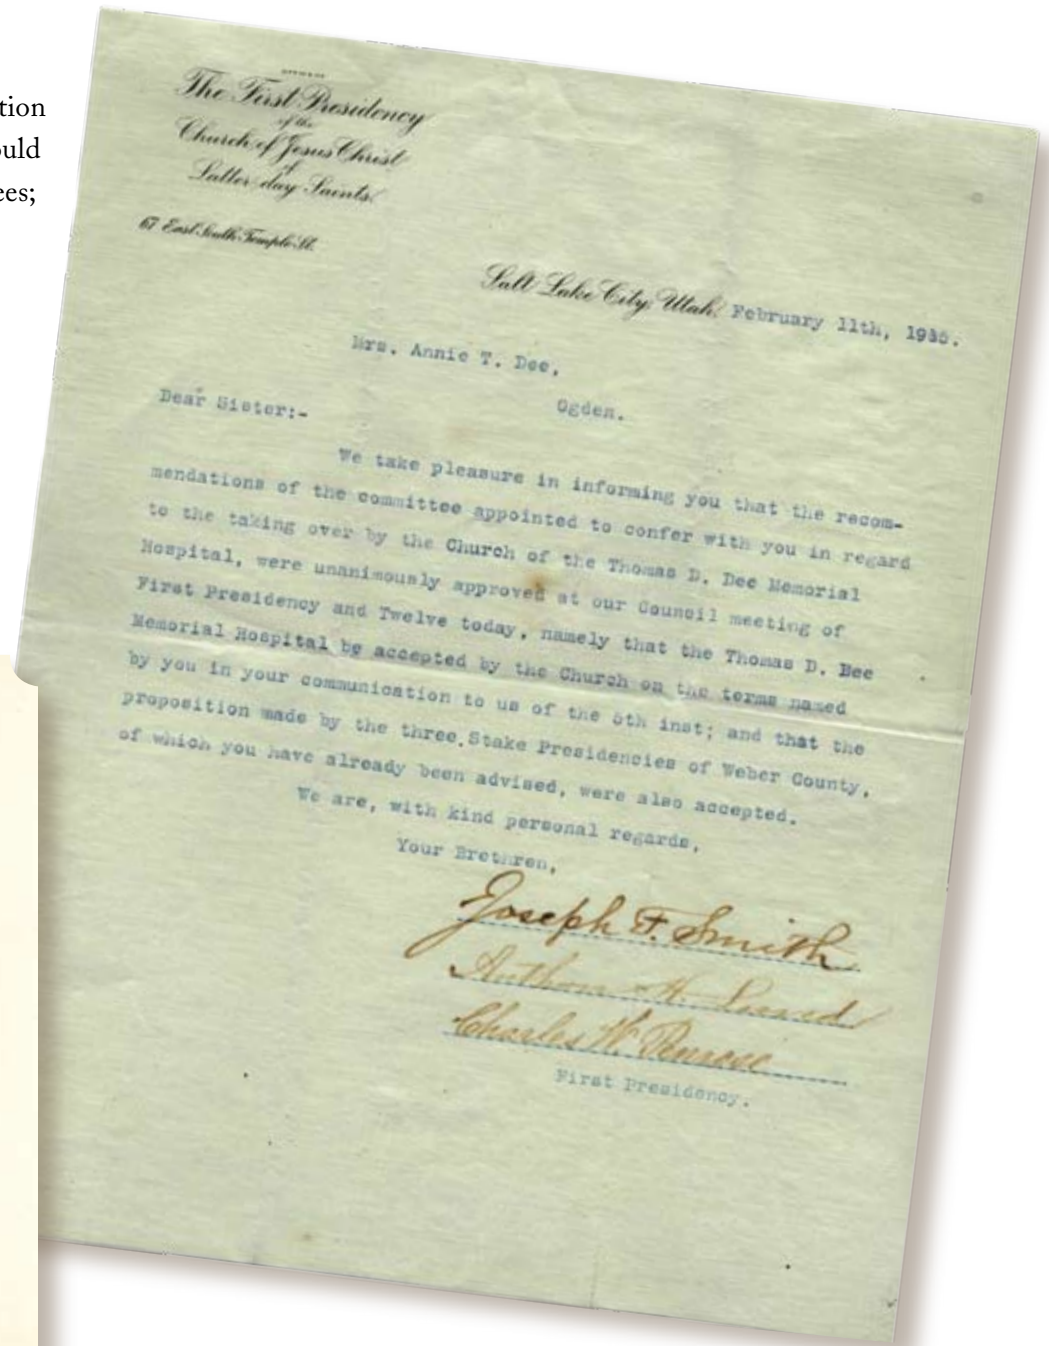 tion
ould
ees;
OFFICE OF
The First Presidency
of the
Church of Jesus Christ
of
Latter-day Saints.
67 East South Temple St.
Salt Lake City, Utah. February 11th,
Mrs. Annie T. Dee,
Ogden.
Dear Sister:-
We take pleasure in informing you that the recom-
mendations of the committee appointed to confer with you in regard
to the taking over by the Church of the Thomas D. Dee Memorial
Hospital, were unanimously approved at our Council meeting of
First Presidency and Twelve today, namely that the Thomas D. Dee
Memorial Hospital be accepted by the Church on the terms named
by you in your communication to us of the 5th inst; and that the
proposition made by the three Stake Presidencies of Weber County,
of which you have already been advised, were also accepted.
We are, with kind personal regards,
Your Brethren,
Joseph F. Smith
Anthon H. Lund
Charles W. Penrose
First Presidency.